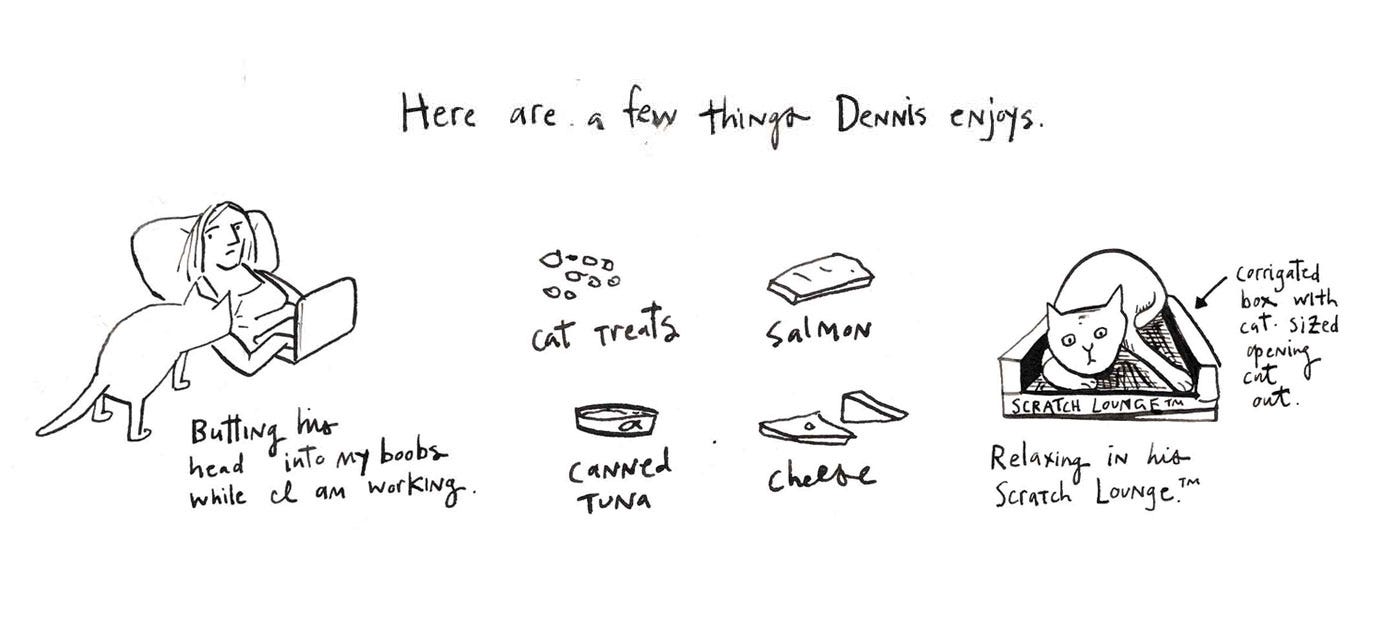 Here are a few things Dennis enjoys.
Butting his
head into my boobs
while I am working.
cat treats
salmon
canned
tuna
cheese
SCRATCH LOUNGE™
corrigated
box with
cat-sized
opening
cut
out.
Relaxing in his
Scratch Lounge.™